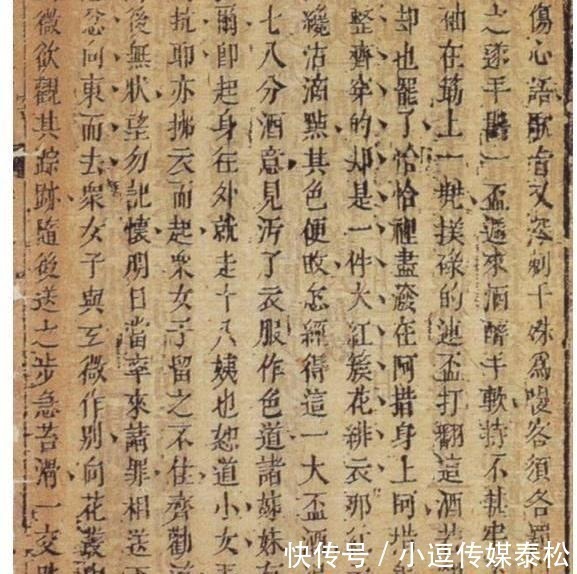 傷心語歌旨又深刺十姝爲慢客須各罰
之遂手斟一盃遞來酒醉手軟持不甚牢
袖在筯上一兜撲碌的連盃打翻這酒若
却也罷了恰恰裡盡潑在阿措身上阿措
整齊穿的却是一件大紅簇花緋衣那紅
纔沾滴點其色便敗怎經得這一大盃酒
七八分酒意見汚了衣服作色道諸姊妹
爾卽起身往外就走十八姨也怒道小女
抗耶亦拂衣而起衆女子留之不住齊勸
後無狀望勿記懷明日當率來請罪相送
忿向東而去衆女子與玄微作別向花叢
微欲觀其踪跡隨後送之步急苔滑一交跌
快传号/小逗传媒泰松